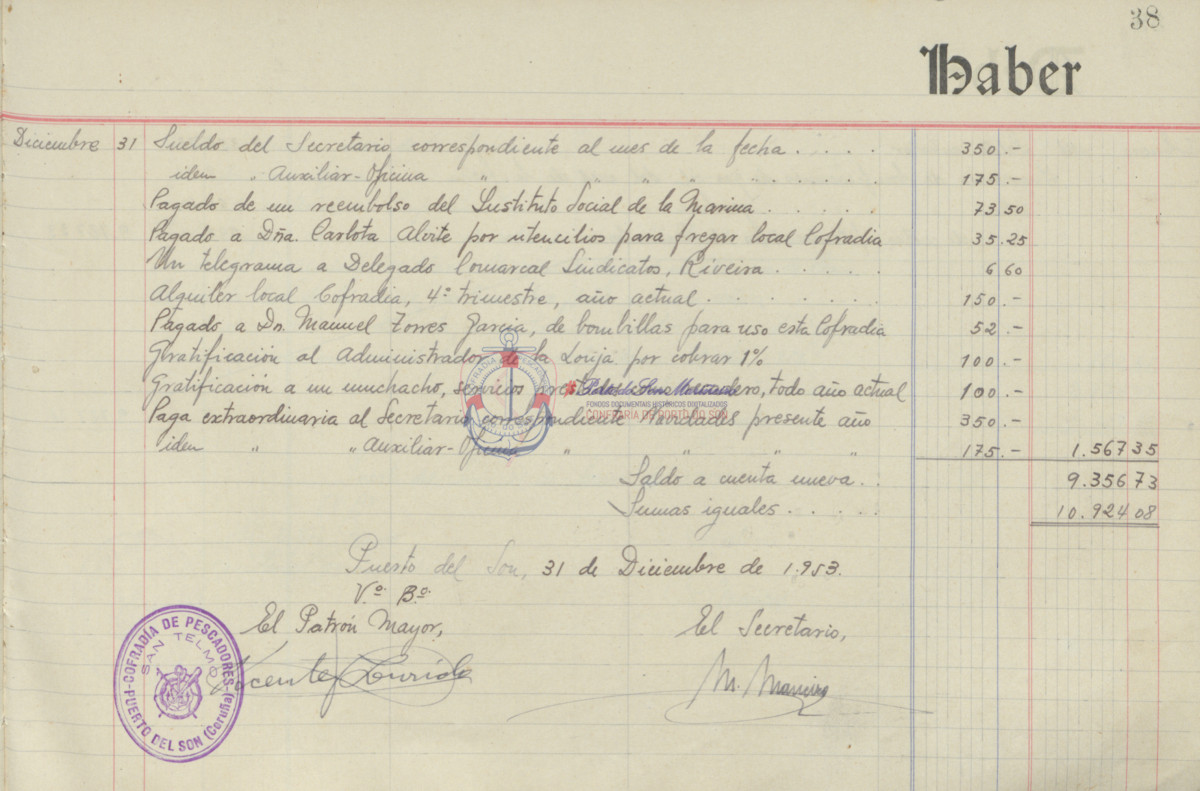 38
Haber
Diciembre 31 Sueldo del Secretario correspondiente al mes de la fecha . . . . 350.-
iden " Auxiliar-Oficina " " " " . . . . . 175.-
Pagado de un reembolso del Instituto Social de la Marina . . . . . 73.50
Pagado a Dña. Carlota Alvite por utencilios para fregar local Cofradia 35.25
Un telegrama a Delegado Comarcal Sindicatos, Riveira . . . . . 6.60
Alquiler local Cofradia, 4º trimestre, año actual . . . . . . . 150.-
Pagado a Dn. Manuel Torres Garcia, de bombillas para uso esta Cofradia 52.-
Gratificación al Administrador de la Lonja por cobrar 1% 100.-
Gratificación a un muchacho, servicios todo año actual 100.-
Paga extraordinaria al Secretario correspondiente Navidades presente año 350.-
iden " " Auxiliar-Oficina " " " " 175.- 1.567 35
Saldo a cuenta nueva . . 9.356 73
Sumas iguales . . . . . 10.924 08
FONDOS DOCUMENTAIS HISTÓRICOS DIGITALIZADOS
CONFRARÍA DE PORTO DO SON
Puerto del Son, 31 de Diciembre de 1.953.
Vº Bº
El Patrón Mayor, El Secretario,
Vicente
M.
COFRADÍA DE PESCADORES
SAN TELMO
PUERTO DEL SON (Coruña)